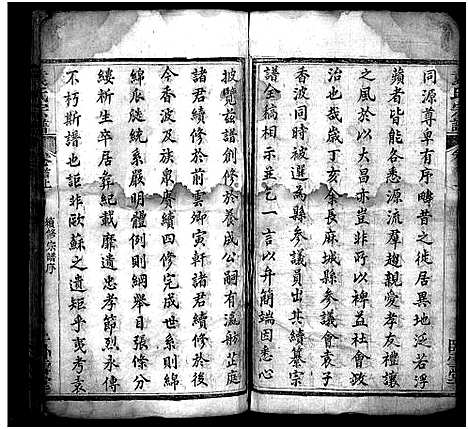 同源尊卑有序疇昔之徙居異地近若浮
蘋者皆能各悉源流羣趨親愛孝友禮讓
之風於以大昌亦豈非所以裨益社會政
治也哉歲丁亥余長麻城縣參議會袁子
香波同時被選為縣參議員出其續纂宗
譜全稿相示並乞一言以弁簡端因悉心
披覽茲譜創修於養成公嗣有瀛舫芷庭
諸君續修於前雲卿寅軒諸君續修於後
今香波及族衆賡續四修完成世系則綿
綿瓜瓞統系嚴明體例則綱舉目張條分
縷析生卒居葬紀載靡遺忠孝節烈永傳
不朽斯譜也詎非歐蘇之遺矩乎夷考袁
袁氏宗譜
卷首上
續修宗譜序